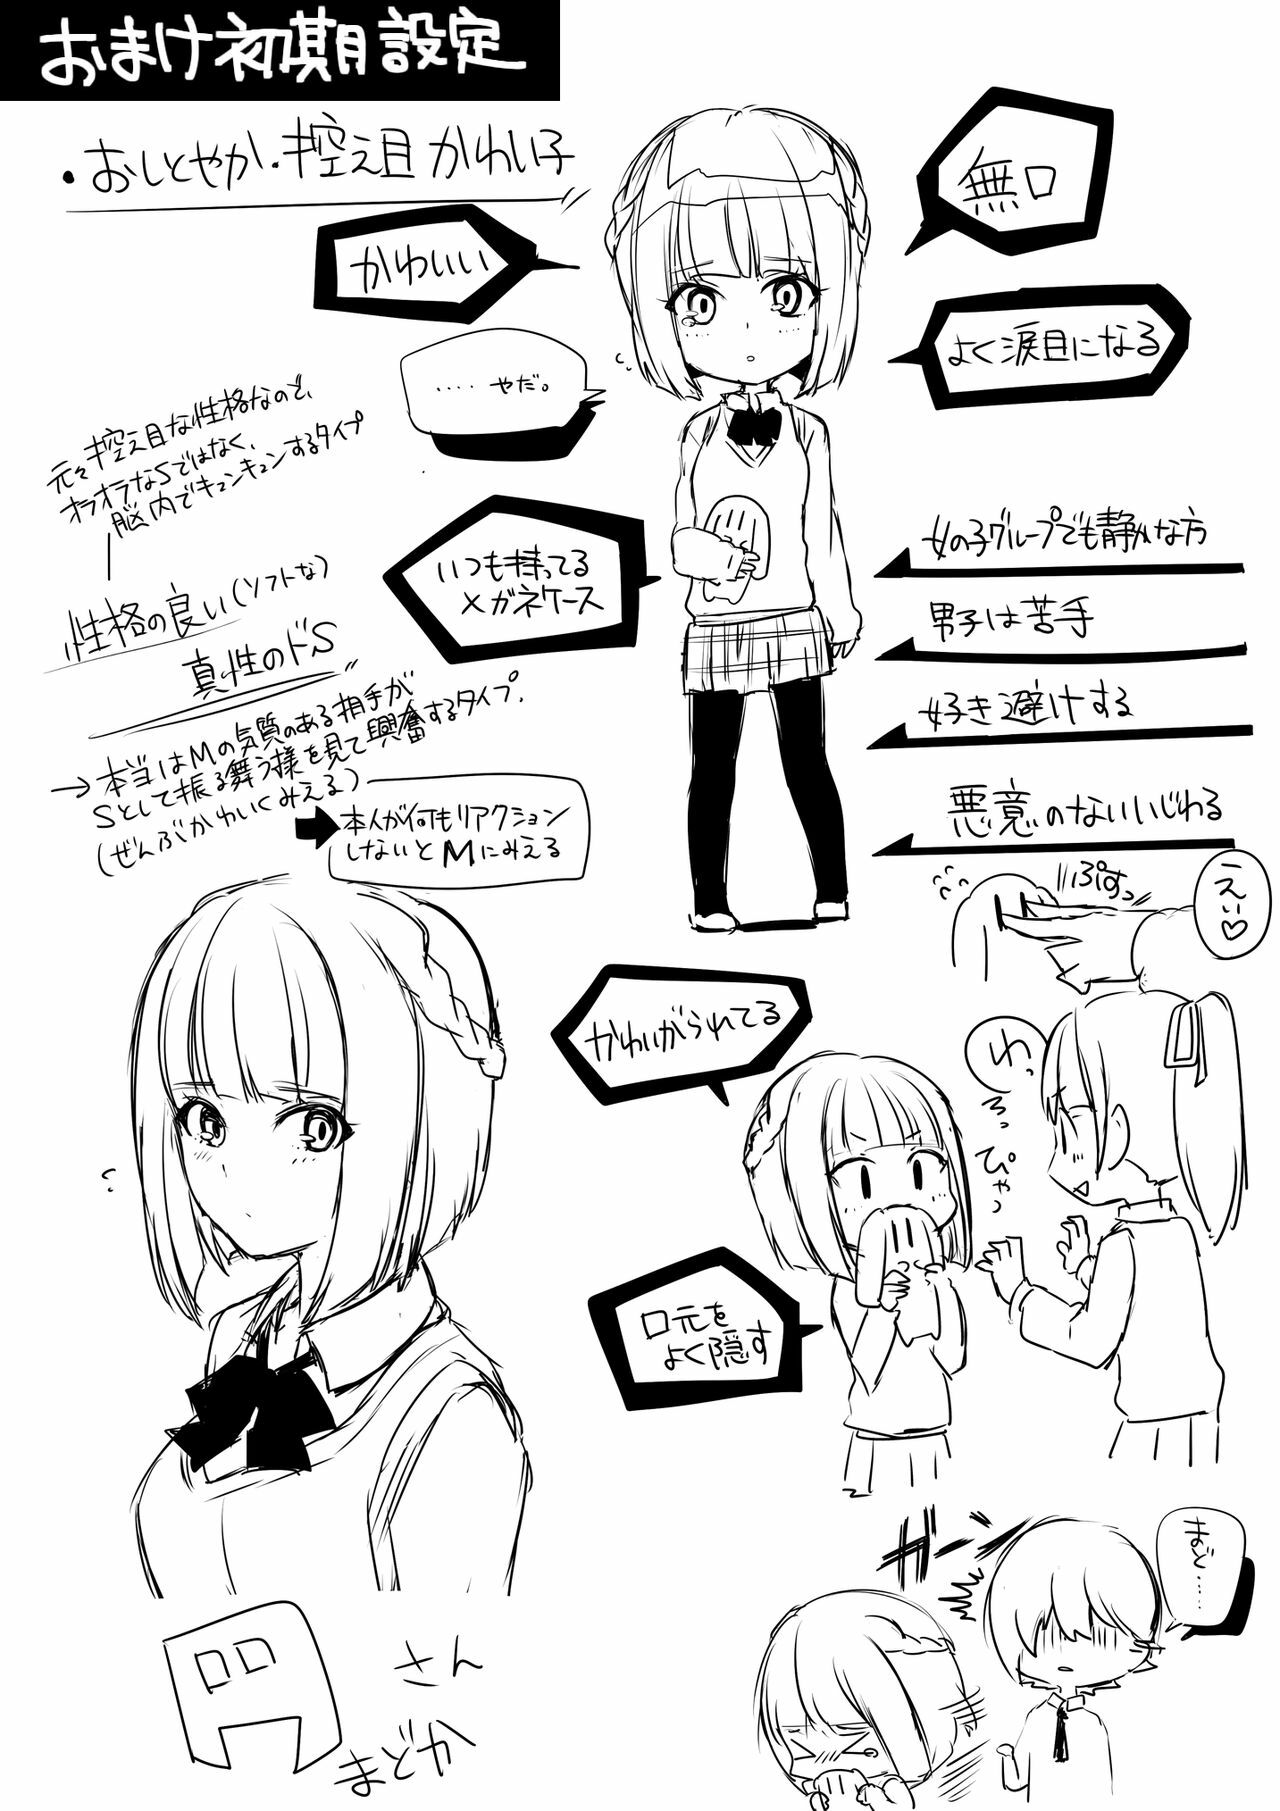 おまけ初期設定
・おしとやか・控え目かわい子
無口
かわいい
よく涙目になる
‥‥‥やだ。
元々控え目な性格なので、
オラオラなSではなく、
脳内でキュンキュンするタイプ
いつも持ってる
メガネケース
女の子グループでも静かな方
男子は苦手
好き避けする
悪意のないいじわる
性格の良い(ソフトな)
真性のドS
→本当はMの気質のある相手が
Sとして振る舞う様を見て興奮するタイプ.
(ぜんぶかわいくみえる)
本人が何もリアクション
しないとMにみえる
ぷすっ
えい♡
かわいがられてる
わっ
ろっ
ぴゃっ
口元を
よく隠す
ガーン
まど……
円
さん
まどか